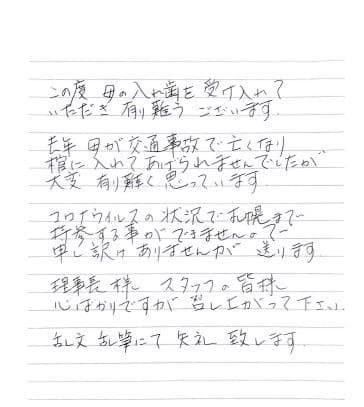 この度 母の入れ歯を受け入れて
いただき 有り難う ございます.
去年 母が交通事故で亡くなり
棺に入れてあげられませんでしたが
大変 有り難く 思っています.
コロナウイルスの状況で札幌まで
持参する事ができませんので
申し訳けありませんが 送ります
理事長様 スタッフの皆様
心ばかりですが 召し上がって下さい.
乱文 乱筆にて 失礼 致します.